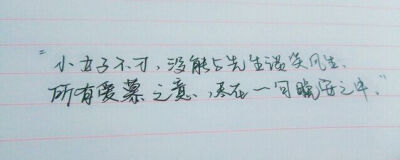 "小女子不才，没能与先生谈笑风生.
所有爱慕之意，尽在一句晚安之中."